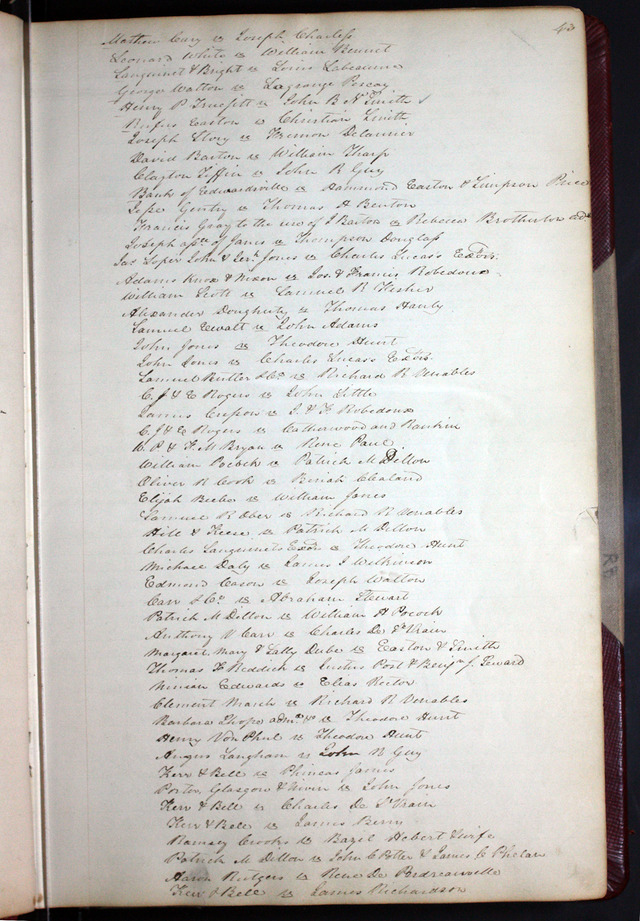 43
Mathew Cary vs Joseph Charless
Leonard White vs William Bennet
Languinet & Bright vs Louis Labeaume
George Walton vs Lagrange
Henry P Truesitt vs John B N Smith
Rufus Easton vs Christian Smith
Joseph Story vs Fremon Delaurier
David Barton vs William Tharp
Clayton Tiffin vs John R Guy
Bank of Edwardsville vs Hammond Easton & Simpson Price
Jesse Gentry vs Thomas H Benton
Francis Gray to the use of J Barton vs Rebecca Brotherton adx
Joseph assee of Janes vs Thompson Douglass
Jas Loper John & Jerh Jones vs Charles Lucas's Extrs.
Adams Knox & Nixon vs Jos. & Francis Robedoux
William Scott vs Samuel R Fisher
Alexander Dougherty vs Thomas Hanly
Samuel Ewalt vs John Adams
John Jones vs Theodore Hunt
John Jones vs Charles Lucas's Extrs.
Samuel Rutter & Co vs Richard R Venables
C. J & E Rogers vs John Little
James Crepow vs J. & F Robedoux
C. J & E Rogers vs Catherwood and Rankin
W. P & F. M Bryan vs Rene Paul
William Pocock vs Patrick M Dillon
Oliver N Cook vs Benah Clealand
Elijah Beebe vs William Jones
Samuel R Ober vs Richard R Venables
Hill & Keese vs Patrick M Dillon
Charles Languenets Exor vs Theodore Hunt
Michael Daly vs James J Wilkinson
Edmond Cason vs Joseph Walton
Carr & Co vs Abraham Stewart
Patrick M Dillon vs William H Pocock
Anthony V Carr vs Charles De St Vrain
Margaret, Mary & Sally Dube vs Easton & Smith
Thomas F Reddick vs Justus Post & Benjn J. Seward
Ninian Edwards vs Elias Rector
Clement March vs Richard R Venables
Barbara Thorp admx vs Theodore Hunt
Henry Von Phul vs Theodore Hunt
Angus Langham vs John R Guy
Kerr & Bell vs Phineas James
Porter, Glasgow & Niven vs John Jones
Kerr & Bell vs Charles De St Vrain
Kerr & Bell vs James Berry
Ramsey Crooks vs Bazil Hebert & wife
Patrick M Dillon vs John C Potter & James C Phelan
Aaron Rutgers vs Rene De
Kerr & Bell vs James Richardson